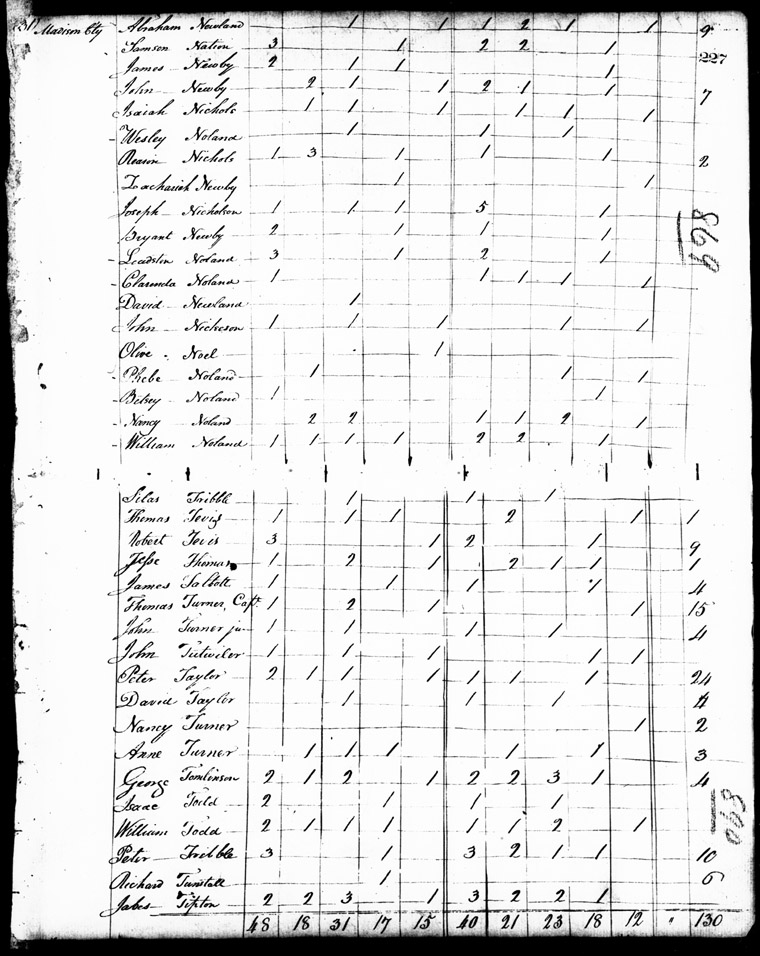 31 Madison Cty Abraham Newland 1 1 1 2 1 1 9
Samson Nation 3 1 2 2 1
227
James Newby 2 1 1 1
John Newby 2 1 1 2 1 1 7
Isaiah Nichols 1 1 1 1 1 1
Wesley Noland 1 1 1
Reason Nichols 1 3 1 1 1 2
Zachariah Newby 1 1
Joseph Nicholson 1 1 1 5 1
Bryant Newby 2 1 1 1
869
Noland 3 1 2 1
Clarinda Noland 1 1 1 1 1
David Newland 1
John Nickeson 1 1 1 1 1
Olive Noel 1
Phebe Noland 1 1 1
Betsey Noland 1 1
Nancy Noland 2 2 1 1 2 1
William Noland 1 1 1 1 2 2 1
Silas Tribble 1 1 1
Thomas Tevis 1 1 1 2 1 1
Robert Tevis 3 1 2 1 9
Jesse Thomas 1 2 1 2 1 1 1
James Talbott 1 1 1 1 4
Thomas Turner, Capt. 1 2 1 1 15
John Turner jr 1 1 1 1 4
John Tutwiler 1 1 1 1 1
Peter Taylor 2 1 1 1 1 1 1 24
David Taylor 1 1 1 4
Nancy Turner 1 2
Anne Turner 1 1 1 1 1 3
George Tomlinson 2 1 2 1 2 2 3 1 4
Isaac Todd 2 1 1 1
William Todd 2 1 1 1 1 1 2 1
890
Peter Tribble 3 1 3 2 1 1 10
Richard Tunstall 1 6
Jabes Tipton 2 2 3 1 3 2 2 1
48 18 31 17 15 40 21 23 18 12 " 130